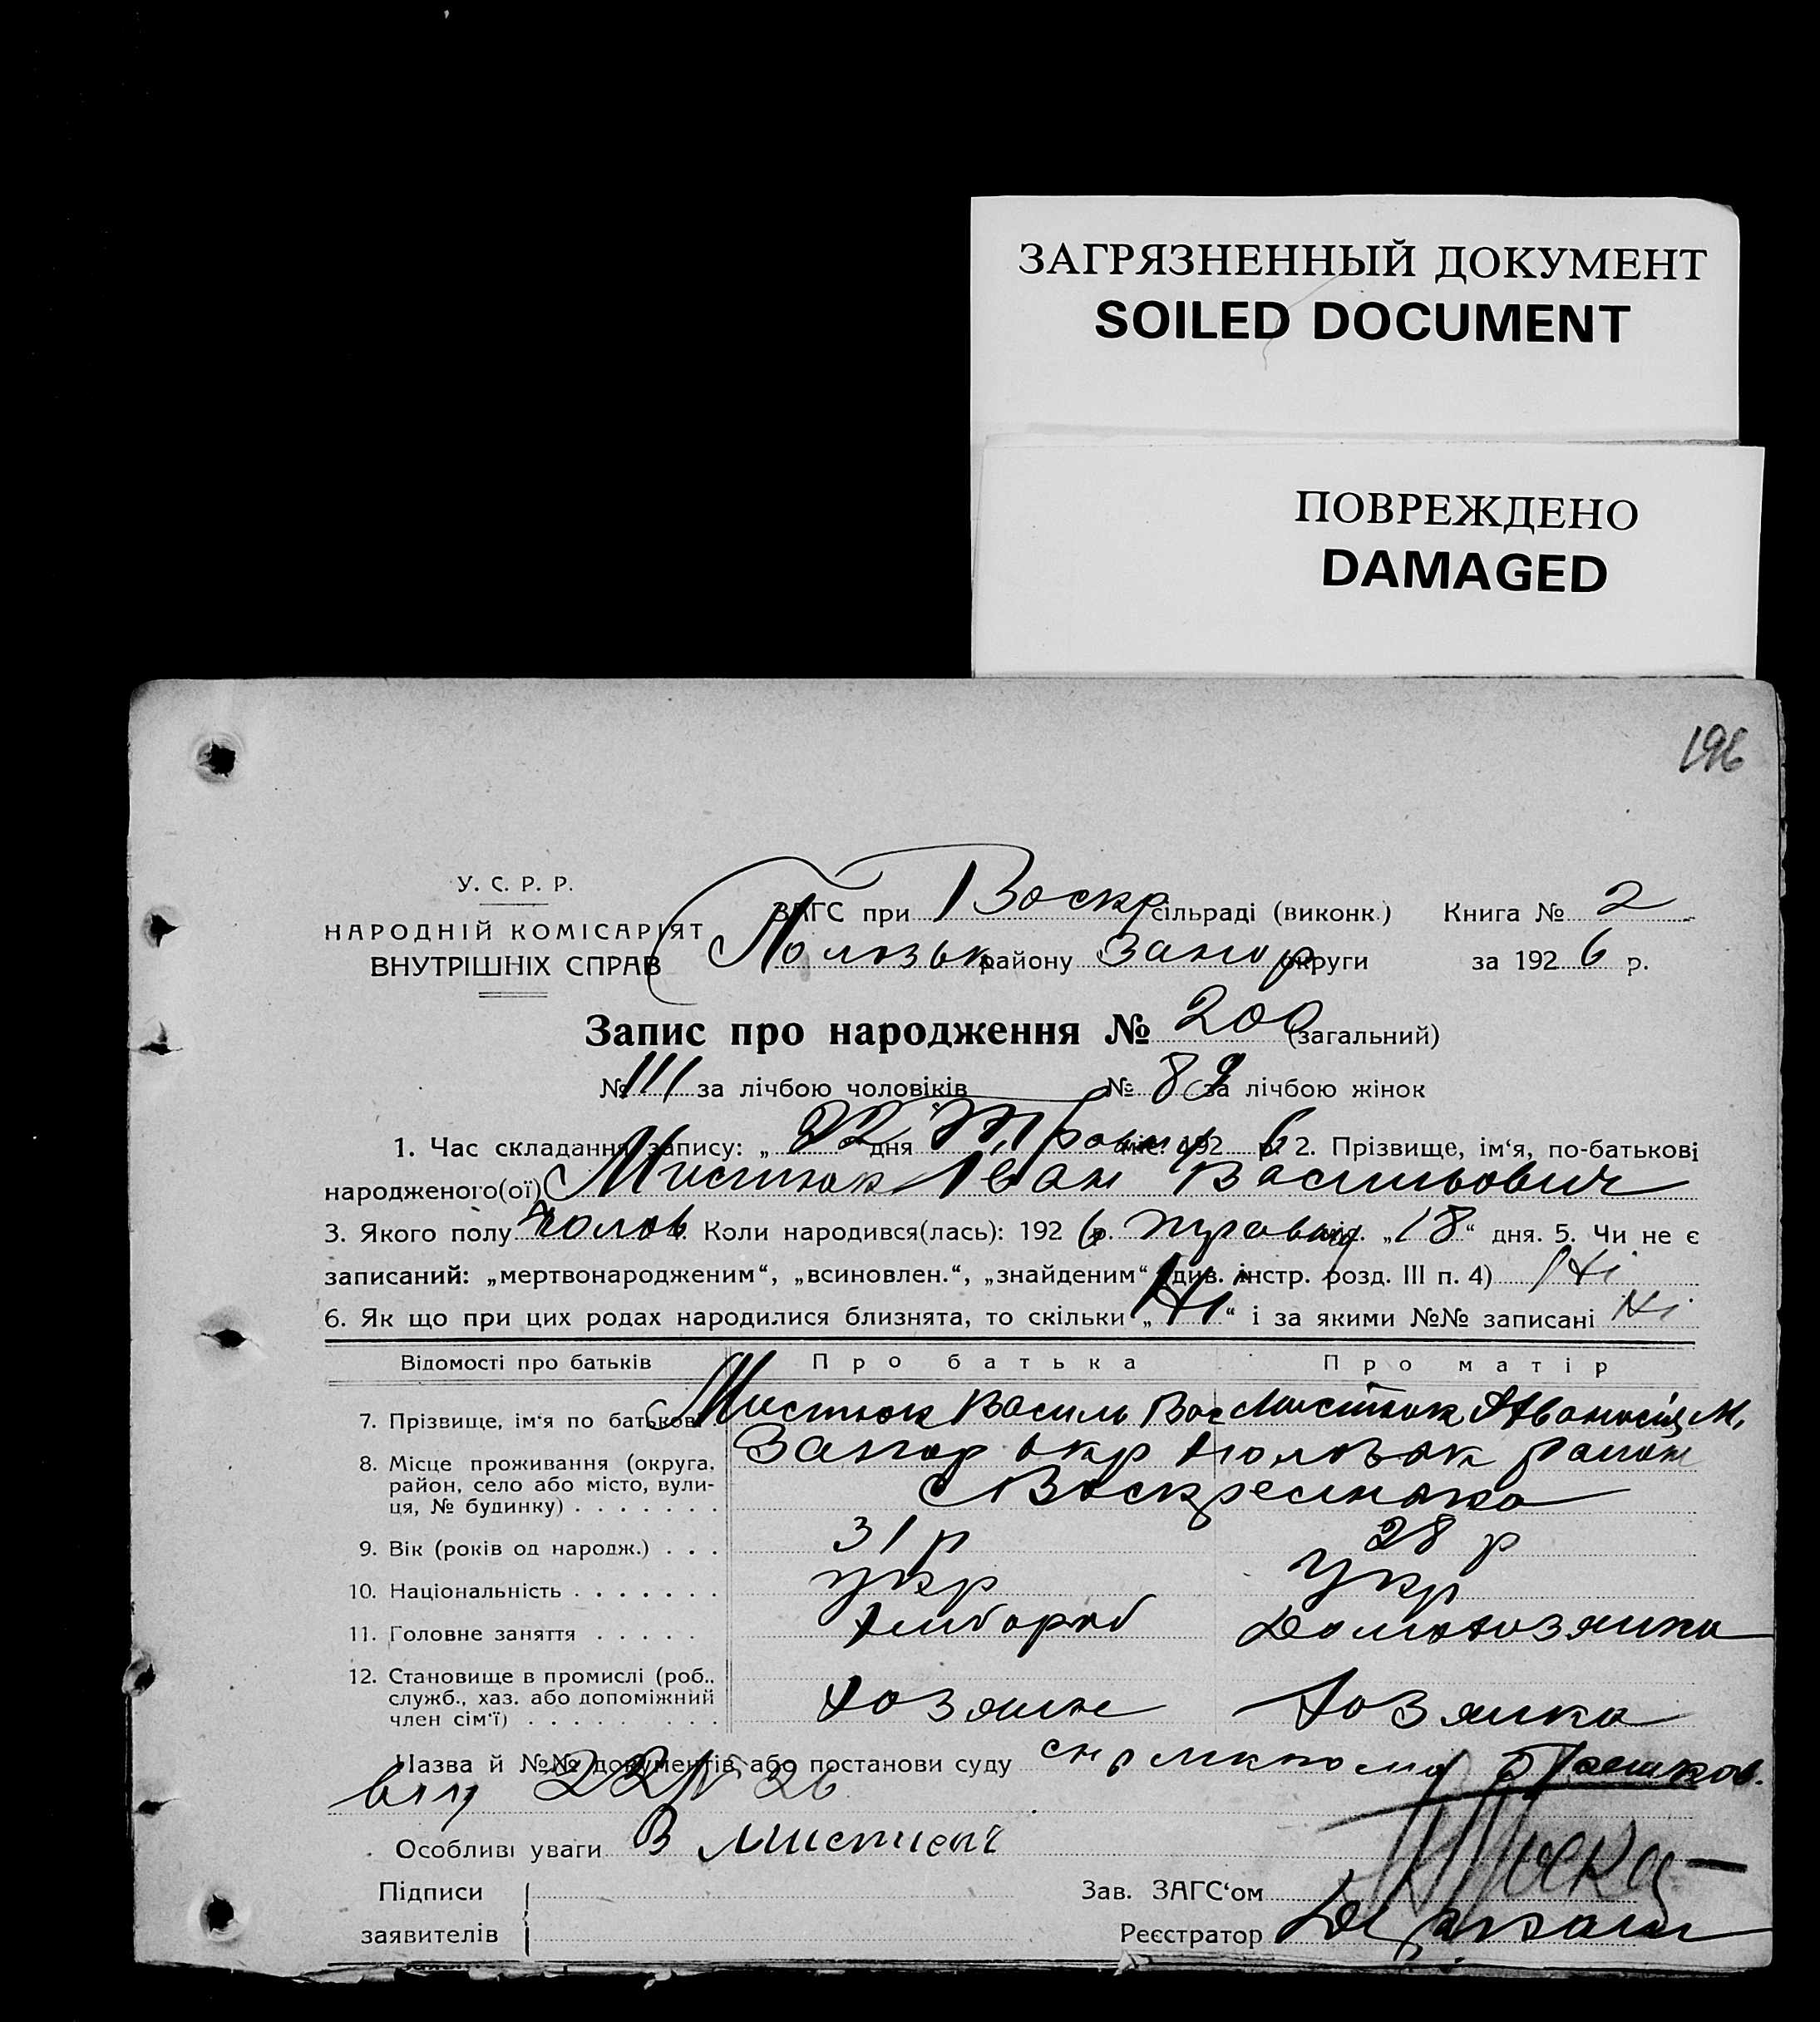 ЗАГРЯЗНЕННЫЙ ДОКУМЕНТ
SOILED DOCUMENT
ПОВРЕЖДЕНО
DAMAGED
196
У. С. Р. Р.
НАРОДНІЙ КОМІСАРІЯТ
ВНУТРІШНІХ СПРАВ
ЗАГС при Воскр сільраді (виконк.) Книга № 2
району Запор округи за 1926 р.
Запис про народження № 200 (загальний)
№ 111 за лічбою чоловіків № 89 за лічбою жінок
1. Час складання запису: „ 22 дня Травня міс. 192 6 р. 2. Прізвище, ім‘я, по-батькові
народженого(ої) Мистюк Іван Васильович
3. Якого полу чолов Коли народився(лась): 192 6 р. травня міс. „ 18 “ дня. 5. Чи не є
записаний: „мертвонародженим“, „всиновлен.“, „знайденим“ (див. інстр. розд. III п. 4) Ні
6. Як що при цих родах народилися близнята, то скільки „ Ні “ і за якими №№ записані Ні
Відомості про батьків Про батька Про матір
7. Прізвище, ім‘я по батькові Мистюк Василь Вас Мистюк Афанасія М.
8. Місце проживання (округа, Запор окр район
район, село або місто, вули-
ця, № будинку) . . . . . . . с Воскресенка
9. Вік (років од народж.) . . . 31 р 28 р
10. Національність . . . . . . . укр Укр
11. Головне заняття . . . . . хлібороб Домохозяйка
12. Становище в промислі (роб.,
служб., хаз. або допоміжний
член сім‘ї) . . . . . . . . . хозяин хозяйка
Назва й №№ документів або постанови суду
від 22/V 26
Особливі уваги В Мистюк
Підписи
заявителів
Зав. ЗАГС‘ом
Реєстратор